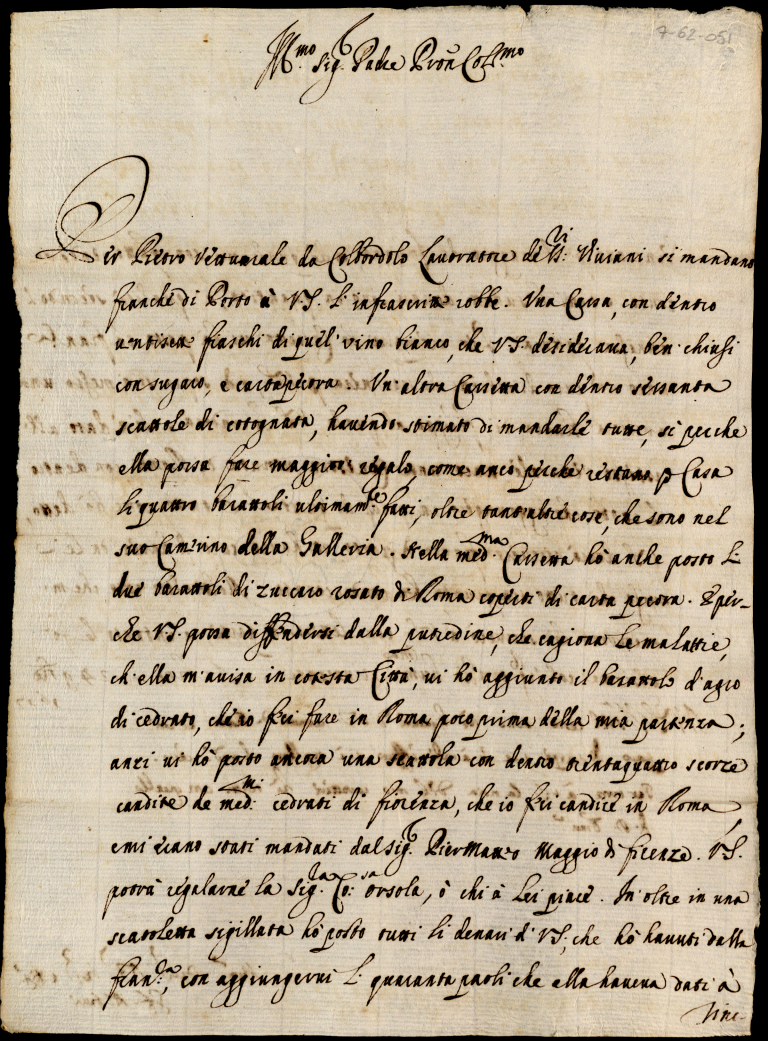 7-62-051
Ill.mo Sig.r Padre Pron Col.mo
Per Pietro Vetturale da Colbordolo Lavoratore de SS.ri Viviani si mandano
franche di Porto à VS. l'infrascritte robbe. Una Cassa, con dentro
ventisette fiaschi di quel vino bianco, che VS. desiderava, ben chiusi
con sugaro, e cartapecora. Un altra Cassetta con dentro sessanta
scattole di cotognata, havendo stimato di mandarle tutte, si perche
ella possa fare maggior regalo, come anco perche restano p Casa
li quattro barattoli ultimam.te fatti, oltre tant'altre cose, che sono nel
suo Camerino della Galleria. Nella med.ma Cassetta hò anche posto li
due barattoli di zuccaro rosato di Roma coperti di carta pecora. E per-
che VS. possa diffendersi dalla putredine, che cagiona le malattie,
ch'ella m'avisa in cotesta Città, vi hò aggiunto il barattolo d'agro
di cedrato, ch'io feci fare in Roma poco prima della mia partenza;
anzi vi hò posto ancora una scattola con dentro trentaquattro scorze
candite de med.mi cedrati di fiorenza, che io feci candire in Roma,
e mi erano stati mandati dal Sig.r Piermatteo Maggio di firenze. VS.
potrà regalarne la Sig.ra Co: Orsola, ò chi à Lei piace. In oltre in una
scattoletta sigillata hò posto tutti li denari di VS., che hò havuti dalla
con aggiungervi li quaranta paoli che ella haveva dati à